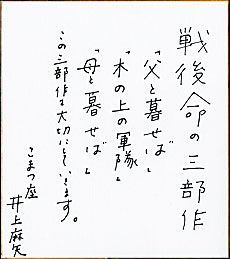 戦後命の三部作
「父と暮せば」
「木の上の軍隊」
「母と暮せば」
この三部作を大切にしていきます。
こまつ座
井上麻矢